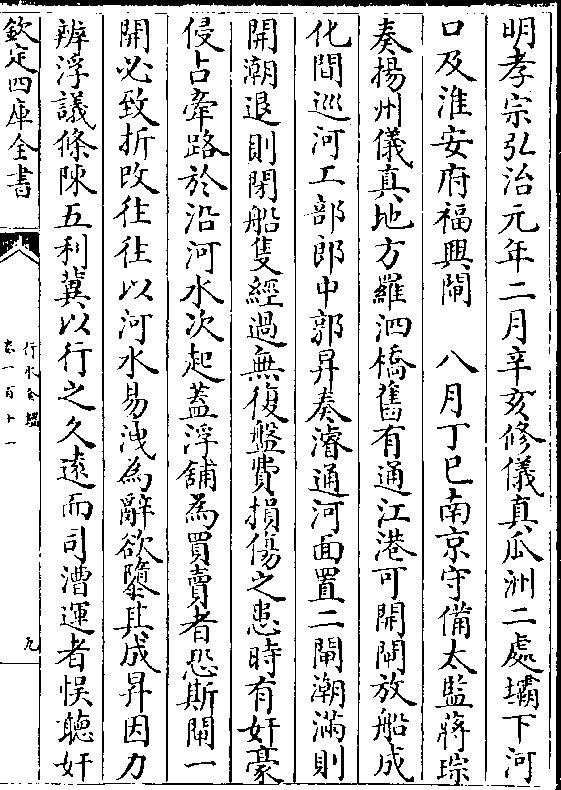 明孝宗弘治元年二月辛亥修儀真瓜洲二處壩下河
口及淮安府福興閘　八月丁巳南京守備太監蔣琮
奏揚州儀真地方羅泗橋舊有通江港可開閘放船成
化間巡河工部郎中郭昇奏濬通河面置二閘潮滿則
開潮退則閉船隻經過無復盤費損傷之患時有奸豪
侵占牽路於沿河水次起蓋浮舖為買賣者恐斯閘一
開必致折改往往以河水易洩為辭欲隳其成昇因力
辨浮議條陳五利冀以行之久遠而司漕運者悞聽奸
欽定四庫全書
行水金鑑
卷一百十一
九